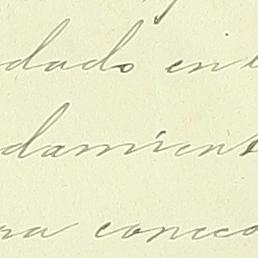 dado en
damient
ra conce